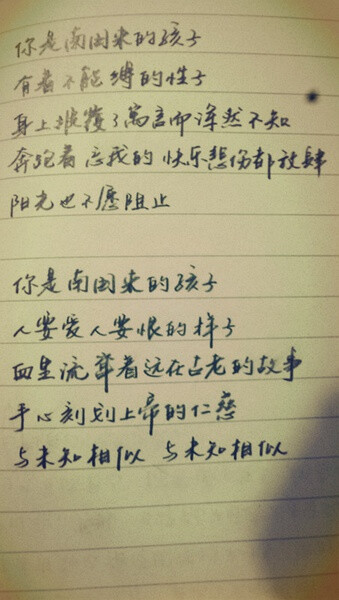 你是南国来的孩子
有着不能缚的性子
身上堆覆了寓言而浑然不知
奔跑着 忘我的 快乐悲伤都放肆
阳光也不愿阻止
你是南国来的孩子
人要爱人要恨的样子
血里流聋着远在古老的故事
手心刻划上帝的仁慈
与未知相似 与未知相似